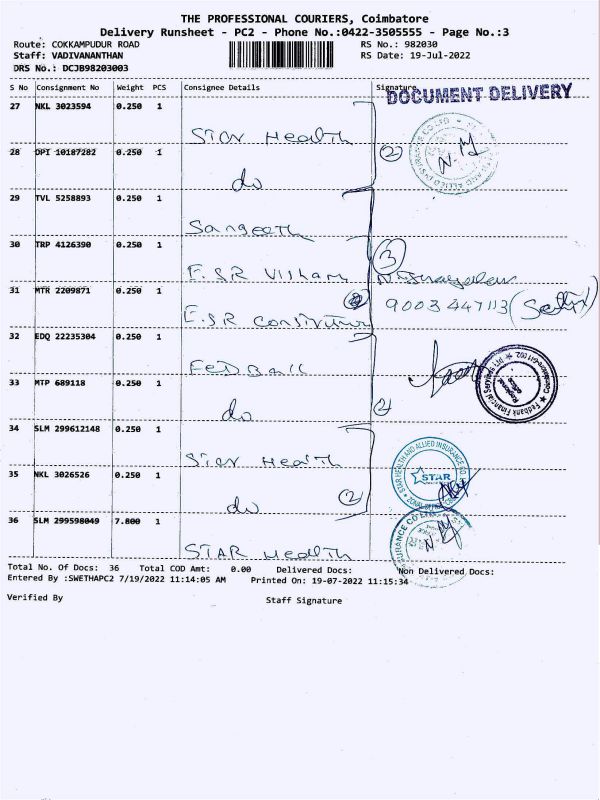 THE PROFESSIONAL COURIERS, Coimbatore
Delivery Runsheet - PC2 - Phone No.:0422-3505555 - Page No.:3
Route: COKKAMPUDUR ROAD RS No.: 982030
Staff: VADIVANANTHAN RS Date: 19-Jul-2022
DRS No.: DCJB98203003
S No Consignment No Weight PCS Consignee Details Signature
DOCUMENT DELIVERY
27 NKL 3023594 0.250 1 Star Health
28 DPI 10187282 0.250 1 do 2
29 TVL 5258893 0.250 1 Sangeeth
30 TRP 4126390 0.250 1 E.S.R 3
9003447113
31 MTR 2209871 0.250 1 E.S.R
32 EDQ 22235304 0.250 1
33 MTP 689118 0.250 1 do 2
Fedbank Financial Services
Regional office
34 SLM 299612148 0.250 1 Star Health
STAR HEALTH AND ALLIED INSURANCE CO
STAR
35 NKL 3026526 0.250 1 do 2
36 SLM 299598049 7.800 1 STAR Health
Total No. Of Docs: 36 Total COD Amt: 0.00 Delivered Docs: Non Delivered Docs:
Entered By :SWETHAPC2 7/19/2022 11:14:05 AM Printed On: 19-07-2022 11:15:34
Verified By Staff Signature